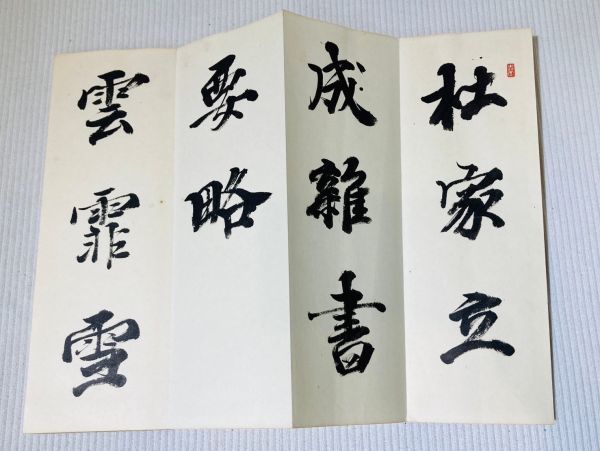 杜家立
成雜書
要略
雲霏雪